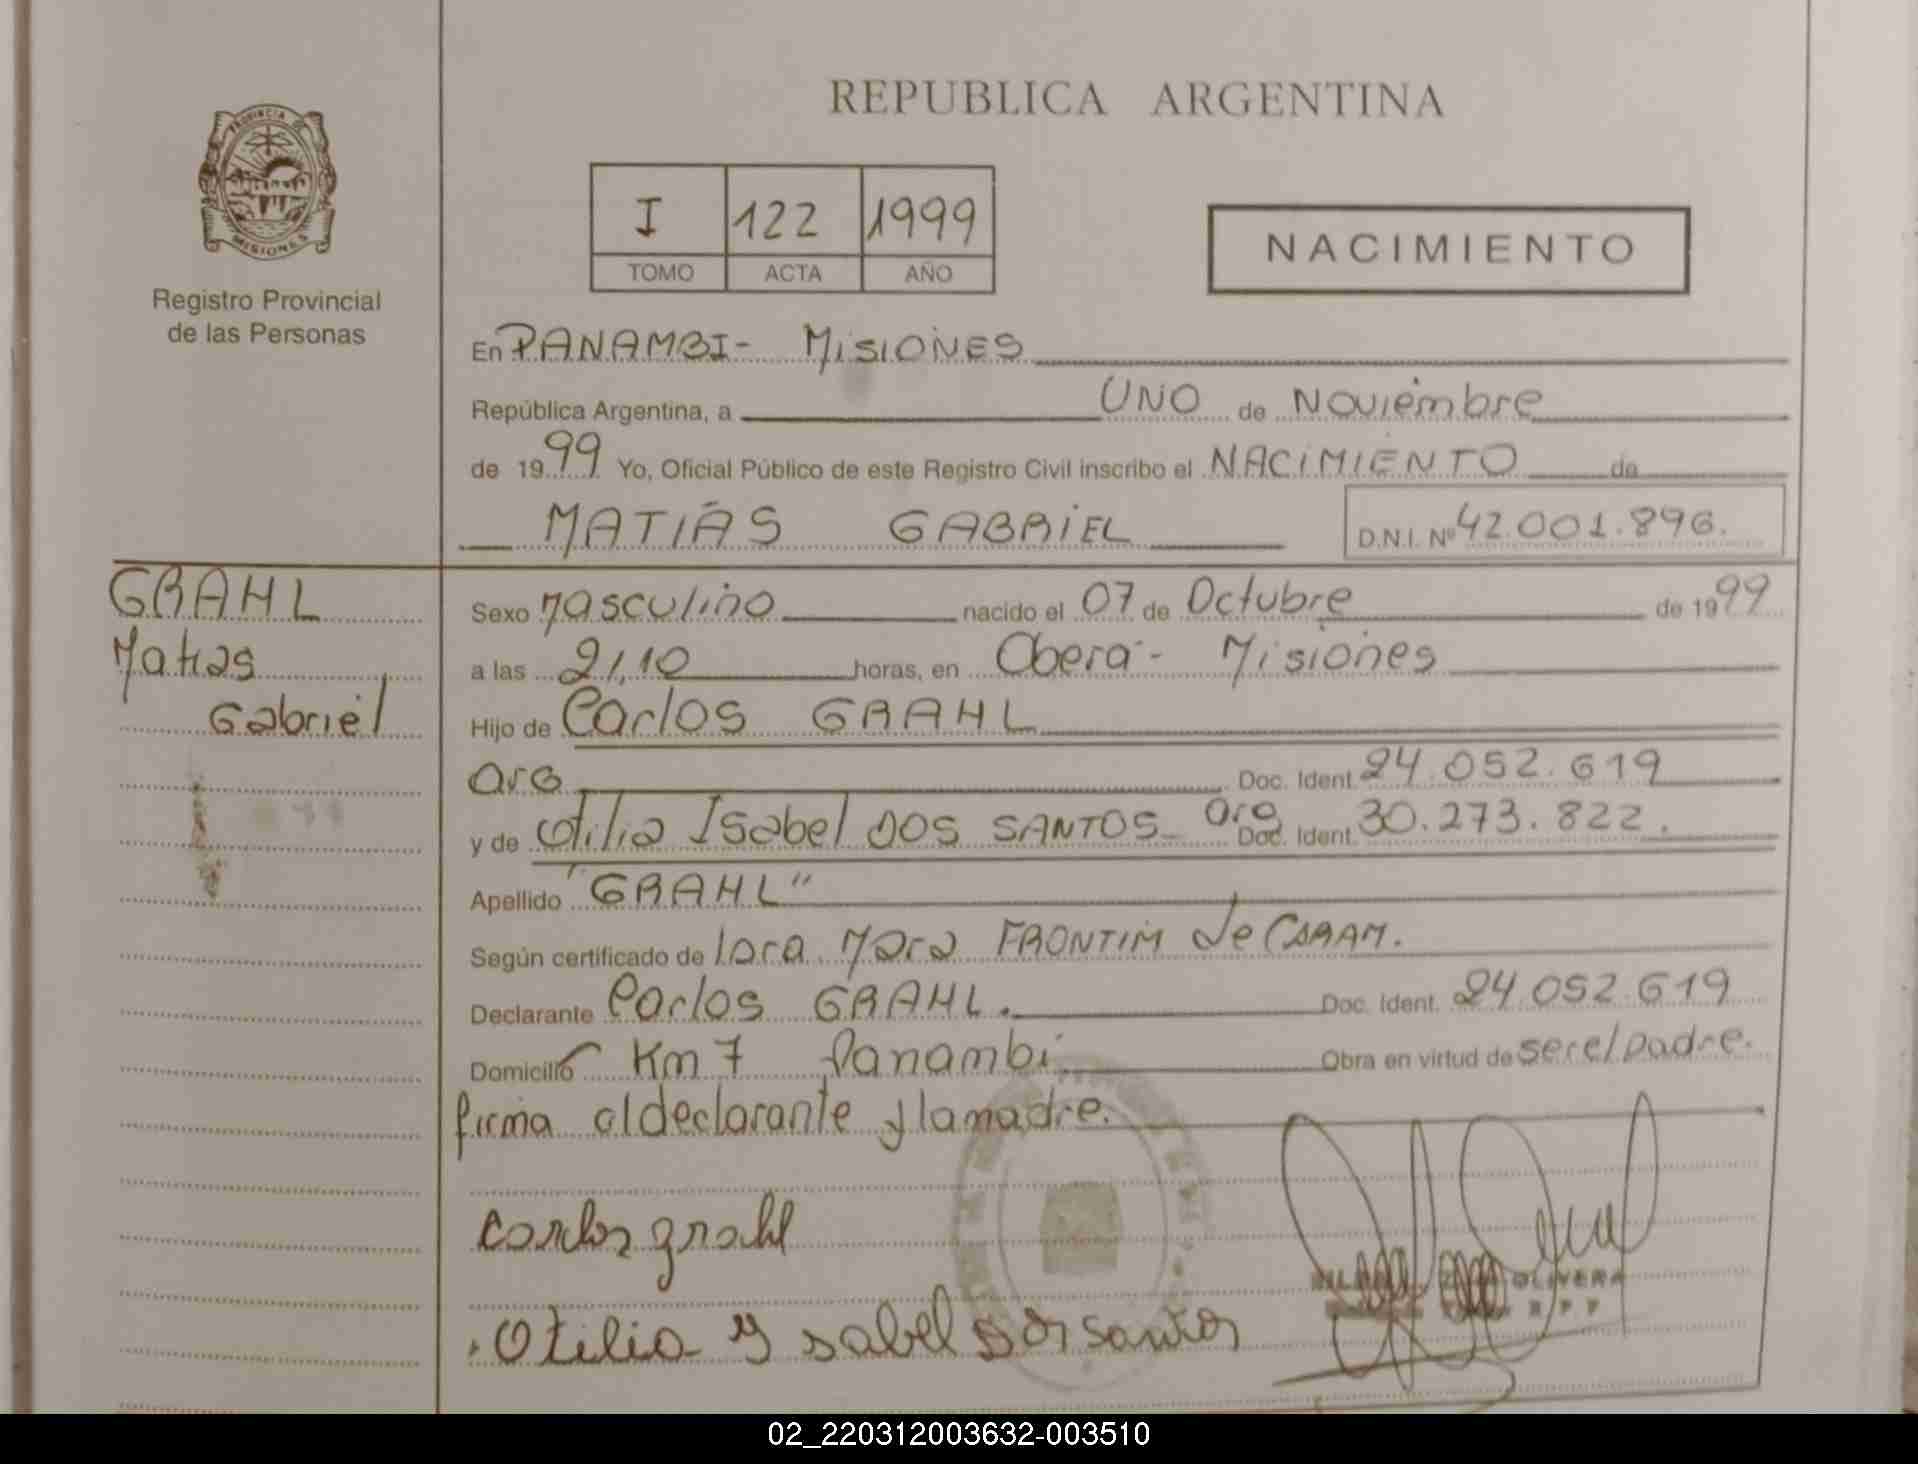 REPUBLICA ARGENTINA
PROVINCIA DE
MISIONES
Registro Provincial
de las Personas
I 122 1999
TOMO ACTA AÑO
NACIMIENTO
En PANAMBI - MISIONES
República Argentina, a UNO de Noviembre
de 1999 Yo, Oficial Público de este Registro Civil inscribo el NACIMIENTO de
MATIAS GABRIEL D.N.I. Nº 42.001.896.
GRAHL
Matias
Gabriel
Sexo Masculino nacido el 07 de Octubre de 1999
a las 21,10 horas, en Oberá - Misiones
Hijo de Carlos GRAHL
arg Doc. Ident. 24.052.619
y de Otilia Isabel DOS SANTOS - arg Doc. Ident. 30.273.822.
Apellido "GRAHL"
Según certificado de Lara Mara FRONTIM de CARAM.
Declarante Carlos GRAHL. Doc. Ident. 24.052.619
Domicilio Km 7 Panambi Obra en virtud de ser el padre.
firma al declarante y la madre.
carlos grahl
OLIVERA
Otilia Ysabel dos santos
02_220312003632-003510